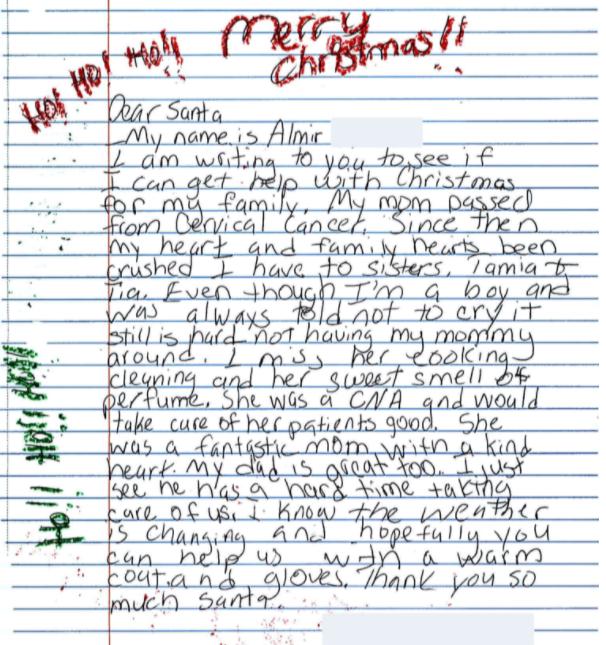 Merry
Christmas!!
HO! HO! HO!!
Dear Santa
My name is Almir
I am writing to you to see if
I can get help with Christmas
for my family. My mom passed
from Cervical Cancer. Since then
my heart and family hearts been
crushed I have to sisters, Tamia &
Tia. Even though I'm a boy and
was always told not to cry it
still is hard not having my mommy
around. I miss her cooking
cleaning and her sweet smell of
perfume. She was a CNA and would
take care of her patients good. She
was a fantastic mom with a kind
heart. My dad is great too. I just
see he has a hard time taking
care of us. I know the weather
is changing and hopefully you
can help us with a warm
coat and gloves. Thank you so
much Santa.
Ho!! HO!! HO!!